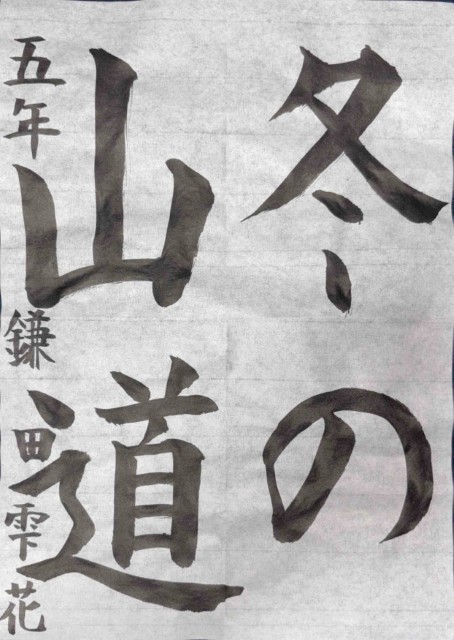 冬の
山道
五年 鎌田雫花